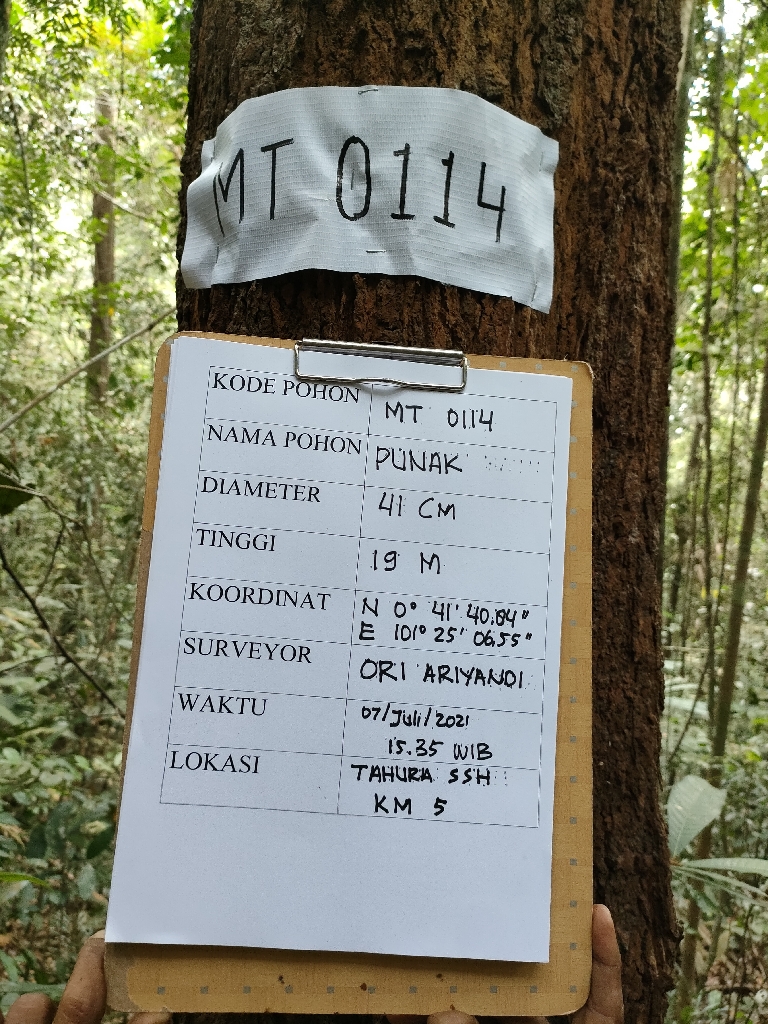 MT 0114
KODE POHON MT 0114
NAMA POHON PUNAK
DIAMETER 41 CM
TINGGI 19 M
KOORDINAT N 0° 41' 40.84"
E 101° 25' 06.55"
SURVEYOR ORI ARIYANDI
WAKTU 07/Juli/2021
15.35 WIB
LOKASI TAHURA SSH
KM 5